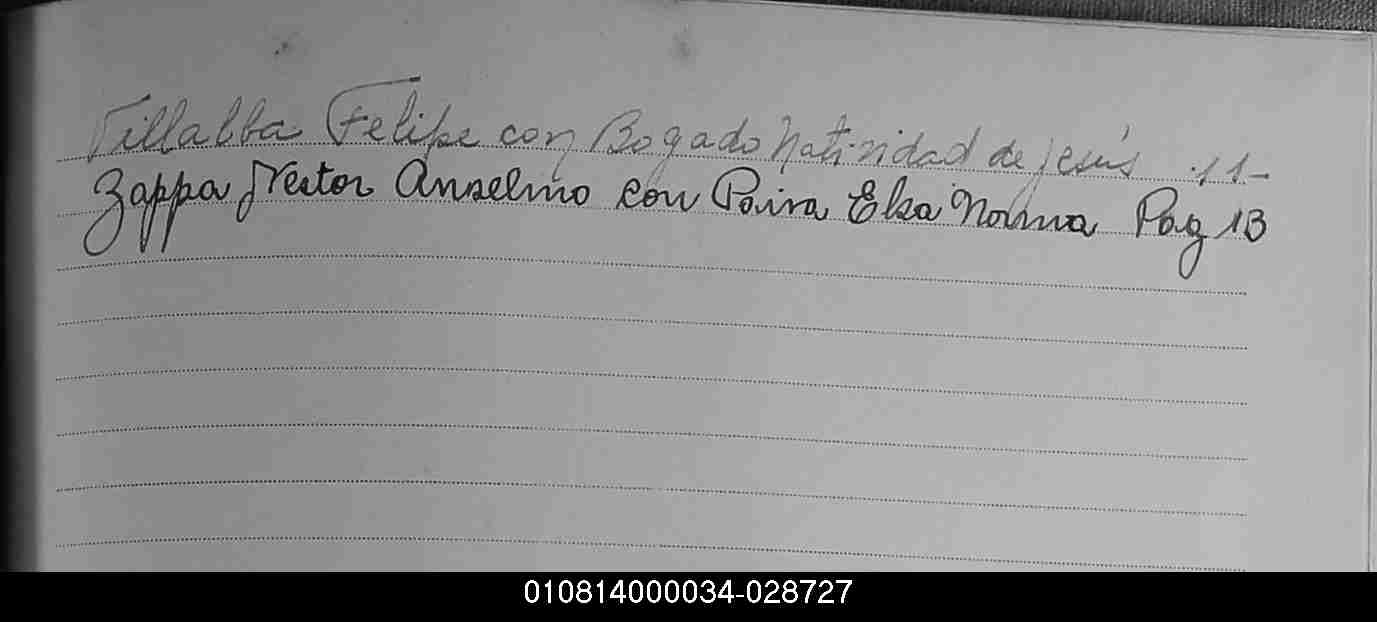 Villalba Felipe con Bogado Natividad de jesús 11-
Zappa Nestor Anselmo con Paiva Elsa Norma Pag 13
010814000034-028727